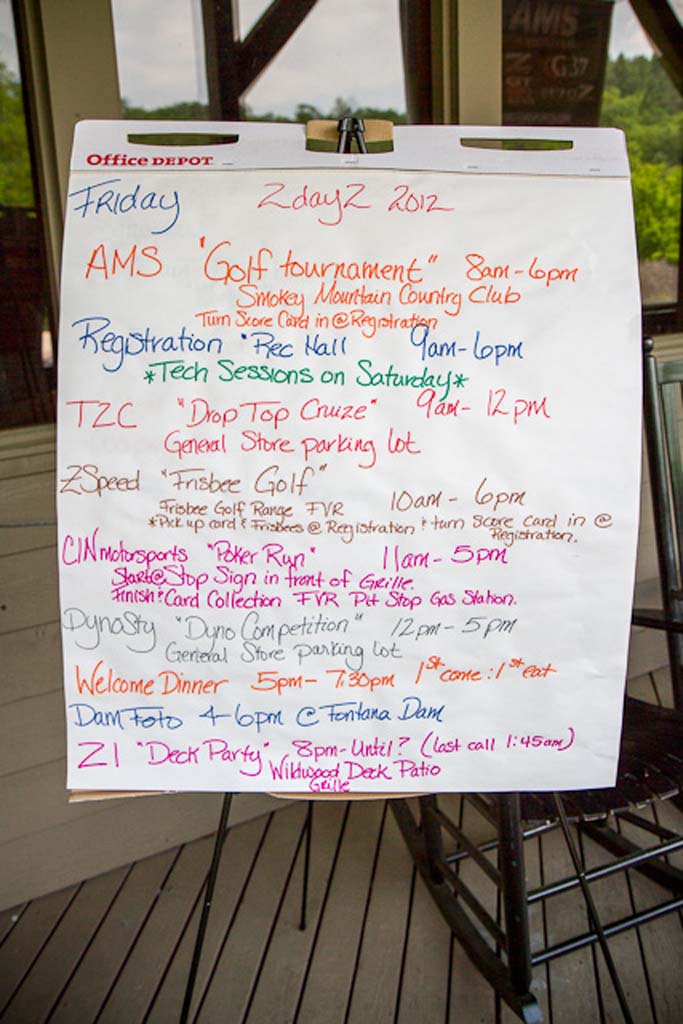 AMS
G37
Office DEPOT
Friday ZdayZ 2012
AMS "Golf tournament" 8am-6pm
Smokey Mountain Country Club
Turn Score Card in @ Registration
Registration "Rec Hall 9am-6pm
*Tech Sessions on Saturday*
TZC "Drop Top Cruize" 9am-12pm
General Store parking lot
ZSpeed "Frisbee Golf" 10am-6pm
Frisbee Golf Range FVR
*Pick up card & Frisbees @ Registration & turn Score card in @
Registration.
CINmotorsports "Poker Run" 11am-5pm
Start@Stop Sign in front of Grille.
Finish & Card Collection FVR Pit Stop Gas Station.
DynoSty "Dyno Competition" 12pm-5pm
General Store parking lot
Welcome Dinner 5pm-7:30pm 1st come : 1st eat
Dam Foto 4-6pm @ Fontana Dam
Z1 "Deck Party" 8pm-Until? (last call 1:45am)
Wildwood Deck Patio
Grille